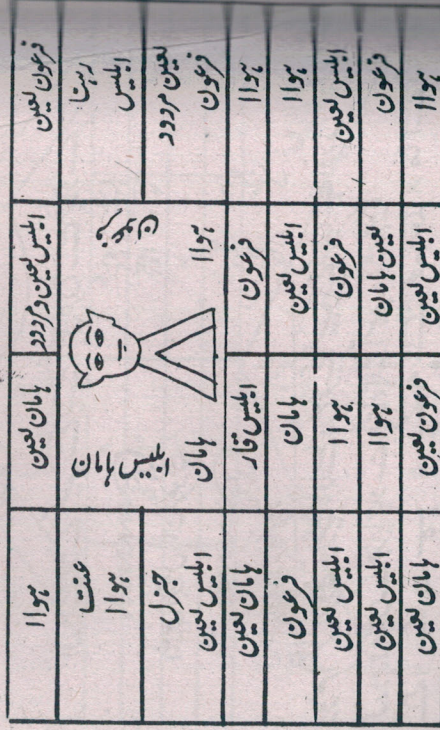 فرعون لعین
ابلیس لعین و مردود
ہامان لعین
ہوا ا
رہتا
ابلیس
لعین مردود
فرعون
فرعون
ہوا ا
ابلیس ہامان
ہامان
عنت
ہوا ا
جزل
ابلیس لعین
ہوا ا
فرعون
ابلیس قار
ہامان لعین
ہوا ا
ابلیس لعین
ہامان
فرعون
ابلیس لعین
فرعون
ہوا ا
ابلیس لعین
فرعون
لعین ہامان
ہوا ا
ابلیس لعین
ہوا ا
ابلیس لعین
فرعون لعین
ہامان لعین